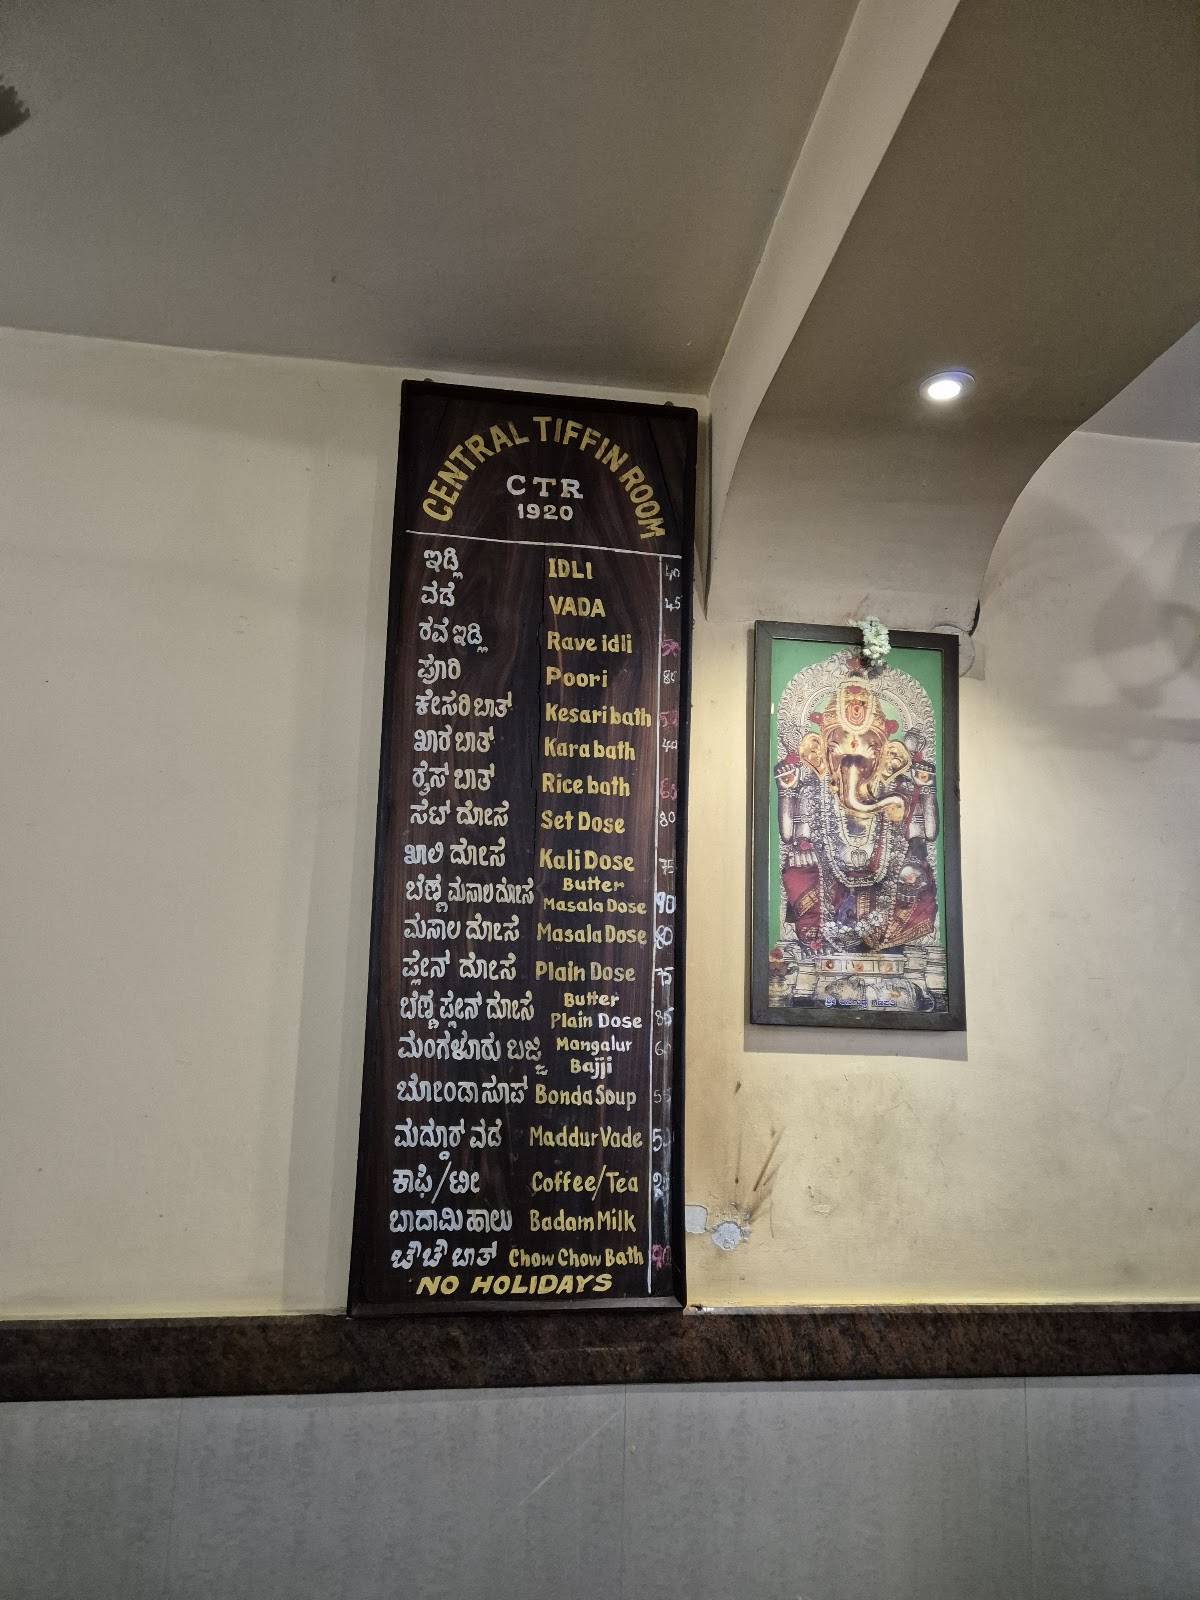 CENTRAL TIFFIN ROOM
CTR
1920
ಇಡ್ಲಿ IDLI 40
ವಡೆ VADA 45
ರವೆ ಇಡ್ಲಿ Rave idli
ಪೂರಿ Poori
ಕೇಸರಿ ಬಾತ್ Kesari bath
ಖಾರ ಬಾತ್ Kara bath 40
ರೈಸ್ ಬಾತ್ Rice bath
ಸೆಟ್ ದೋಸೆ Set Dose 80
ಖಾಲಿ ದೋಸೆ Kali Dose 75
ಬೆಣ್ಣೆ ಮಸಾಲ ದೋಸೆ Butter Masala Dose 90
ಮಸಾಲ ದೋಸೆ Masala Dose 80
ಪ್ಲೇನ್ ದೋಸೆ Plain Dose 75
ಬೆಣ್ಣೆ ಪ್ಲೇನ್ ದೋಸೆ Butter Plain Dose 85
ಮಂಗಳೂರು ಬಜ್ಜಿ Mangalur Bajji 60
ಬೋಂಡಾ ಸೂಪ Bonda Soup 55
ಮದ್ದೂರ್ ವಡೆ Maddur Vade
ಕಾಫಿ/ಟೀ Coffee/Tea
ಬಾದಾಮಿ ಹಾಲು Badam Milk
ಚೌಚೌ ಬಾತ್ Chow Chow Bath 90
NO HOLIDAYS